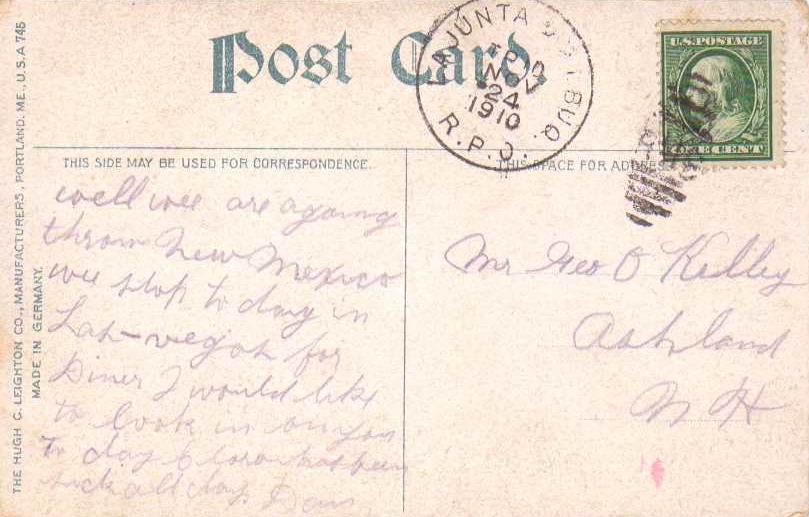 Post Card.
LA JUNTA & ALBUQ.
NOV
24
1910
R.P.O.
U.S. POSTAGE
ONE CENT
THIS SIDE MAY BE USED FOR CORRESPONDENCE.
THIS SPACE FOR ADDRESS
well wee are agoing
throw New Mexico
wee stop to day in
Las-vegas for
Diner I would like
to look in on you
to day has been
sick all day
Mr Geo O Kelley
Ashland
N H
THE HUGH C. LEIGHTON CO., MANUFACTURERS, PORTLAND, ME., U.S.A 745
MADE IN GERMANY.